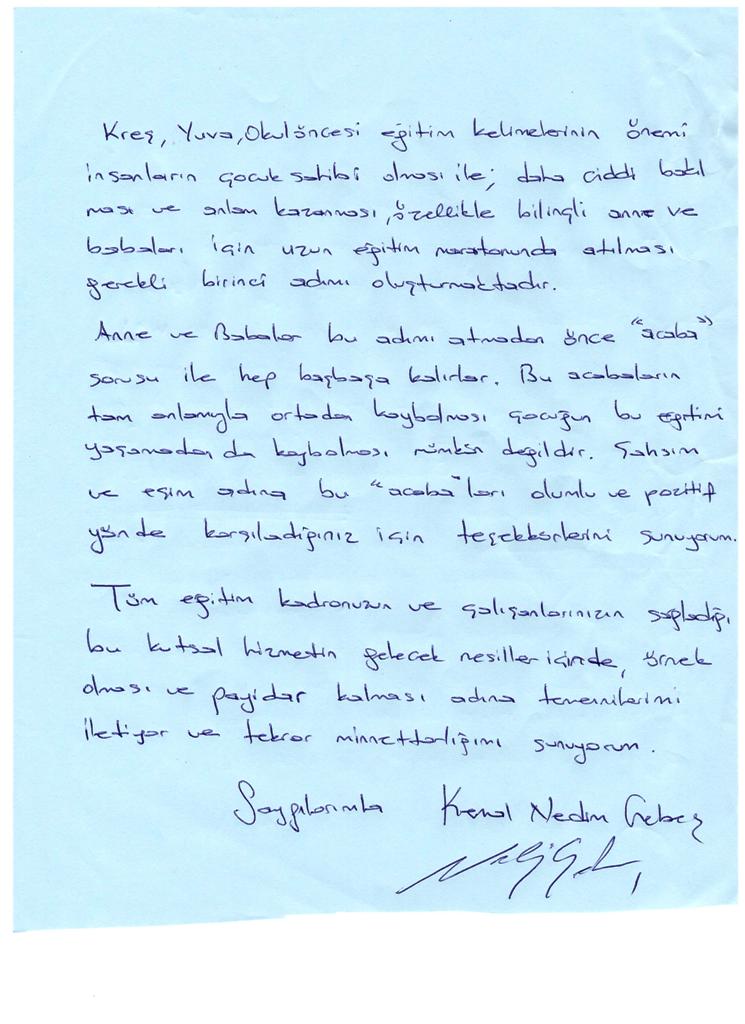 Kreş, Yuva, Okulöncesi eğitim kelimelerinin önemi
insanların çocuk sahibi olması ile; daha ciddi bakıl
ması ve anlam kazanması, özellikle bilinçli anne ve
babaları için uzun eğitim maratonunda atılması
gerekli birinci adımı oluşturmaktadır.
Anne ve Babalar bu adımı atmadan önce "acaba"
sorusu ile hep başbaşa kalırlar. Bu acabaların
tam anlamıyla ortadan kaybolması çocuğun bu eğitimi
yaşamadan da kaybolması mümkün değildir. Şahsım
ve eşim adına bu "acaba"ları olumlu ve pozitif
yönde karşıladığınız için teşekkürlerimi sunuyorum.
Tüm eğitim kadronuzun ve çalışanlarınızın sağladığı
bu kutsal hizmetin gelecek nesiller içinde, örnek
olması ve payidar kalması adına temennilerimi
iletiyor ve tekrar minnettarlığımı sunuyorum.
Saygılarımla Kemal Nedim Gebeş